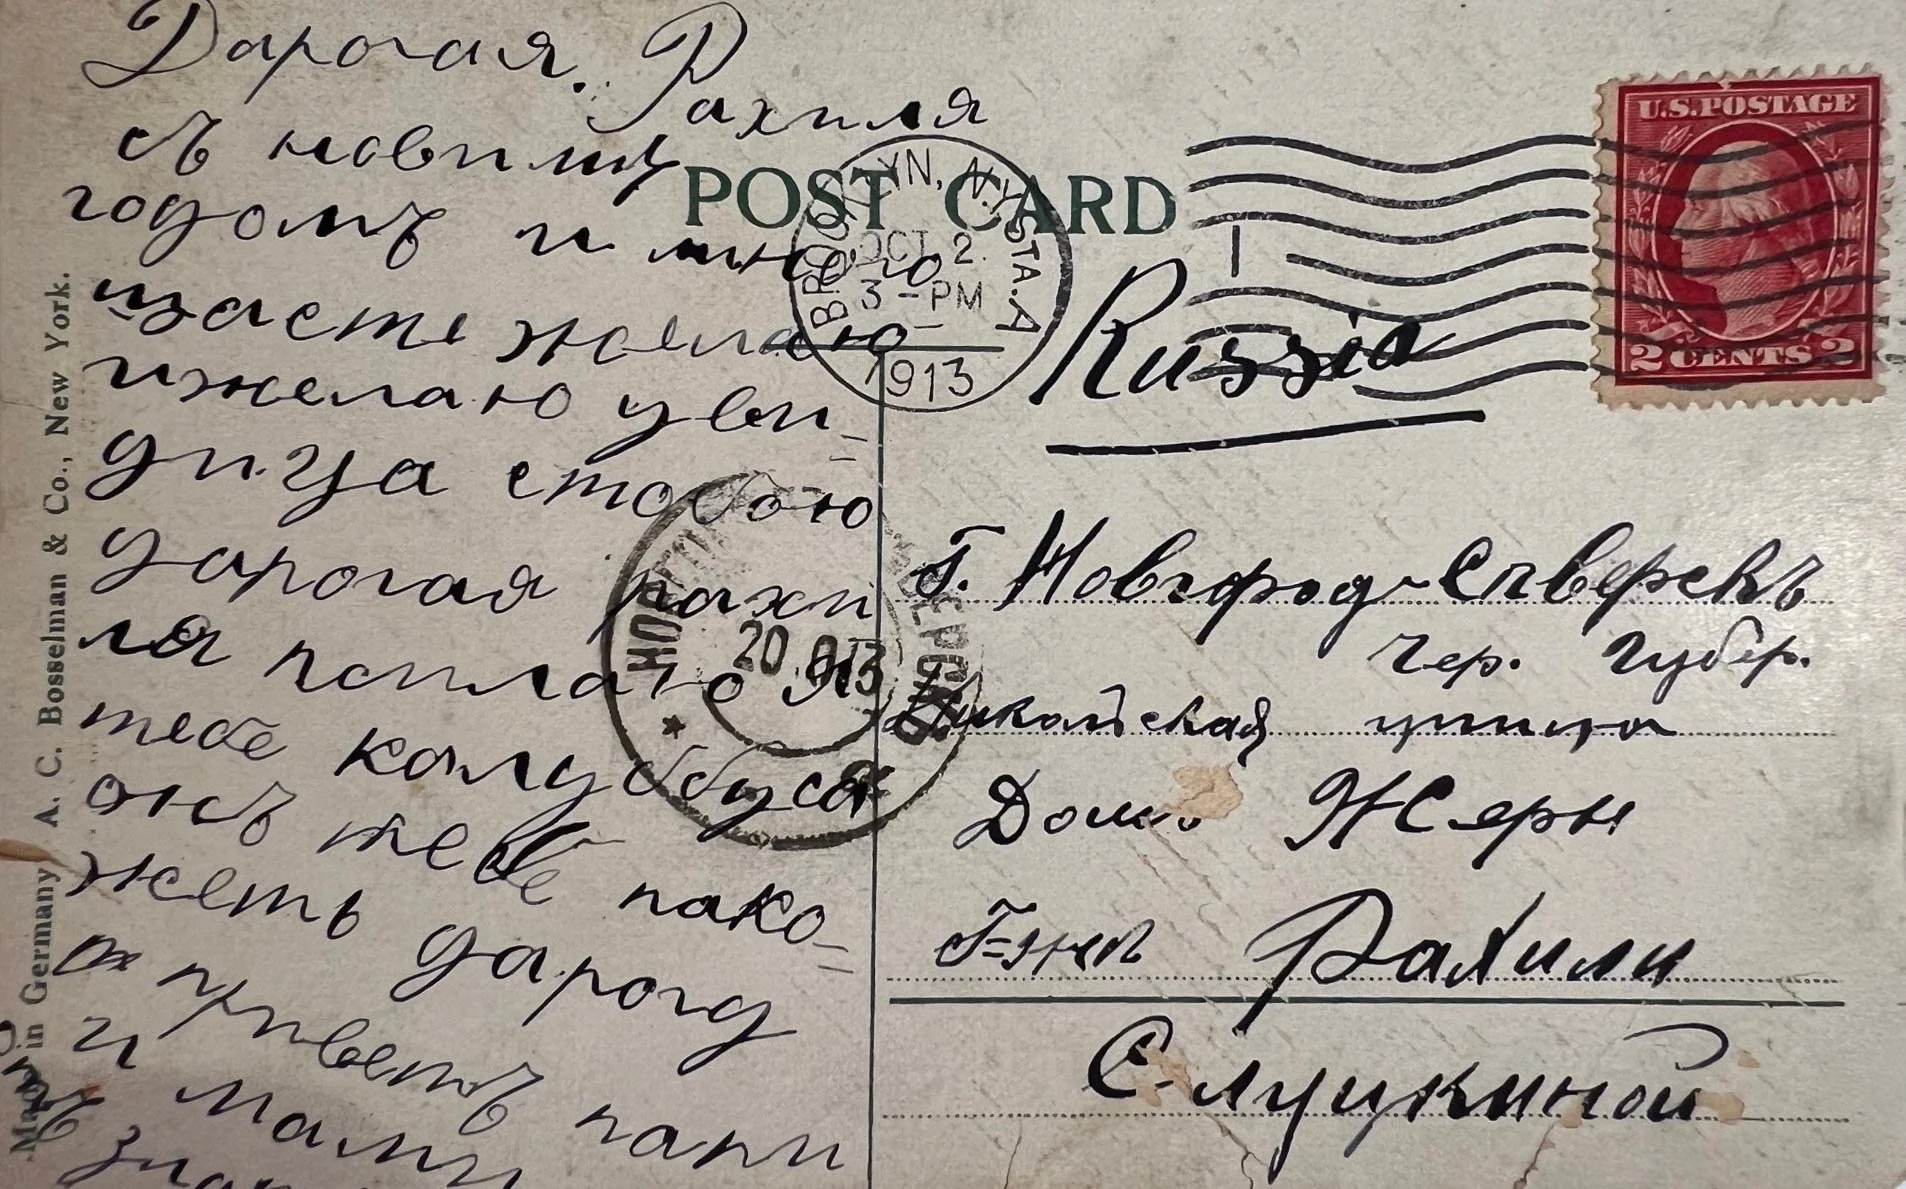 Дарогая. Рахиля
съ новимъ
годомъ и много
щзасте желаю
и желаю уви-
дица стобою
дарогая рахи
ля посилаю я
тебе калуббуса
онъ тебе пако-
жеть дарогу
приветъ папи
и мами
POST CARD
BROOKLYN, N.Y. STA. A
OCT 2
3-PM
1913
U.S. POSTAGE
2 CENTS 2
Russia
г. Новгород-Сѣверскъ
Чер. Губер.
Никольская улица
Домъ Жеры
Г-жѣ Рахили
Слуцкиной
20 9 13
Made in Germany A. C. Bosselman & Co., New York.